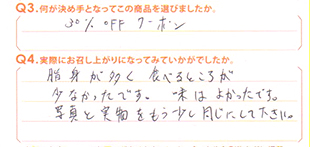 Q3.何が決め手となってこの商品を選びましたか。
30% OFF クーポン
Q4.実際にお召し上がりになってみていかがでしたか。
脂身が多く 食べるところが
少なかったです。 味は よかったです。
写真と実物をもう少し同じにして下さい。